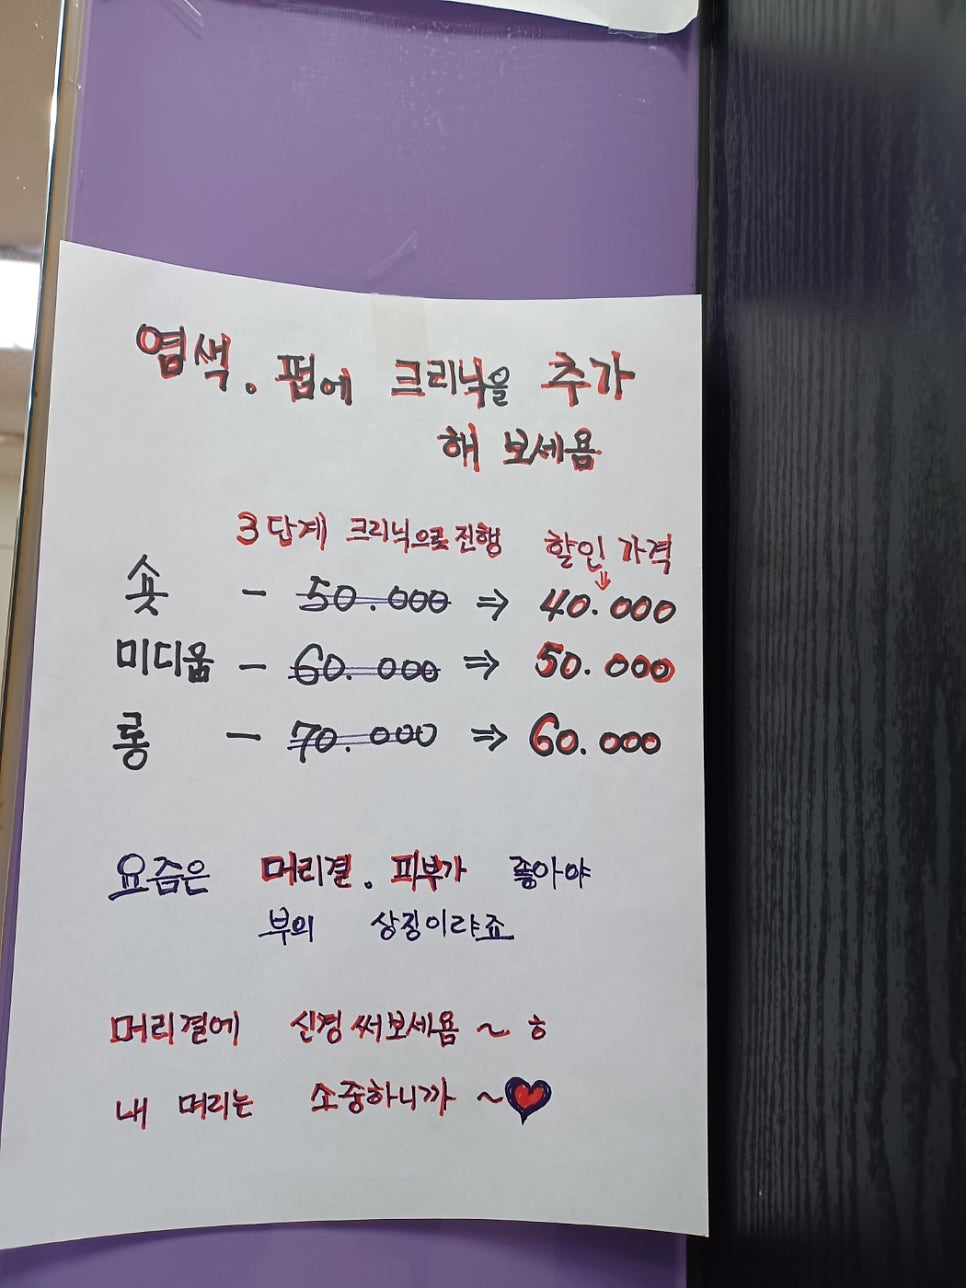 염색. 펌에 크리닉을 추가
해 보세욤
3단계 크리닉으로 진행 할인 가격
숏 - 50.000 ⇒ 40.000
미디움 - 60.000 ⇒ 50.000
롱 - 70.000 ⇒ 60.000
요즘은 머리결. 피부가 좋아야
부의 상징이랴죠
머리결에 신경써보세욤 ~ ㅎ
내 머리는 소중하니까 ~